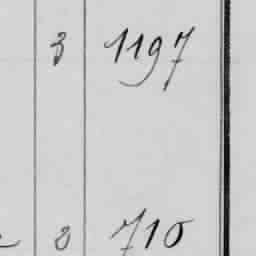 3 1197
8 710